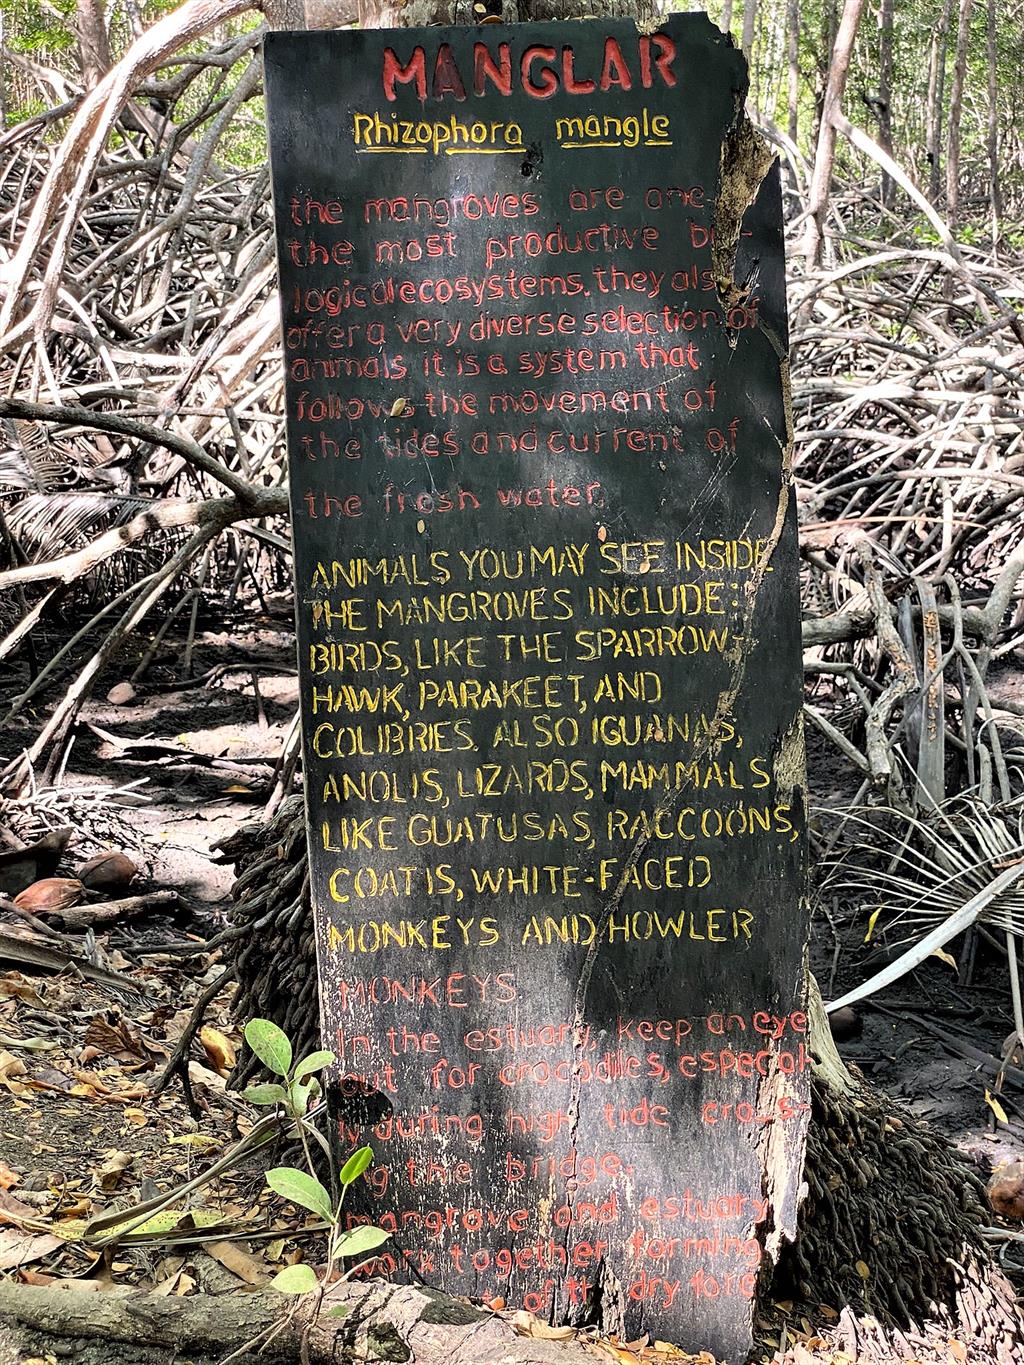 MANGLAR
Rhizophora mangle
the mangroves are one
the most productive bi-
logical ecosystems. they als
offer a very diverse selection of
animals it is a system that
follows the movement of
the tides and current of
the fresh water.
ANIMALS YOU MAY SEE INSIDE
THE MANGROVES INCLUDE:
BIRDS, LIKE THE SPARROW-
HAWK, PARAKEET, AND
COLIBRIES. ALSO IGUANAS,
ANOLIS, LIZARDS, MAMMALS
LIKE GUATUSAS, RACCOONS,
COATIS, WHITE-FACED
MONKEYS AND HOWLER
MONKEYS
In the estuary, keep an eye
out for crocodiles, especial-
ly during high tide cros-
g the bridge.
mangrove and estuary
work together forming
of dry fore